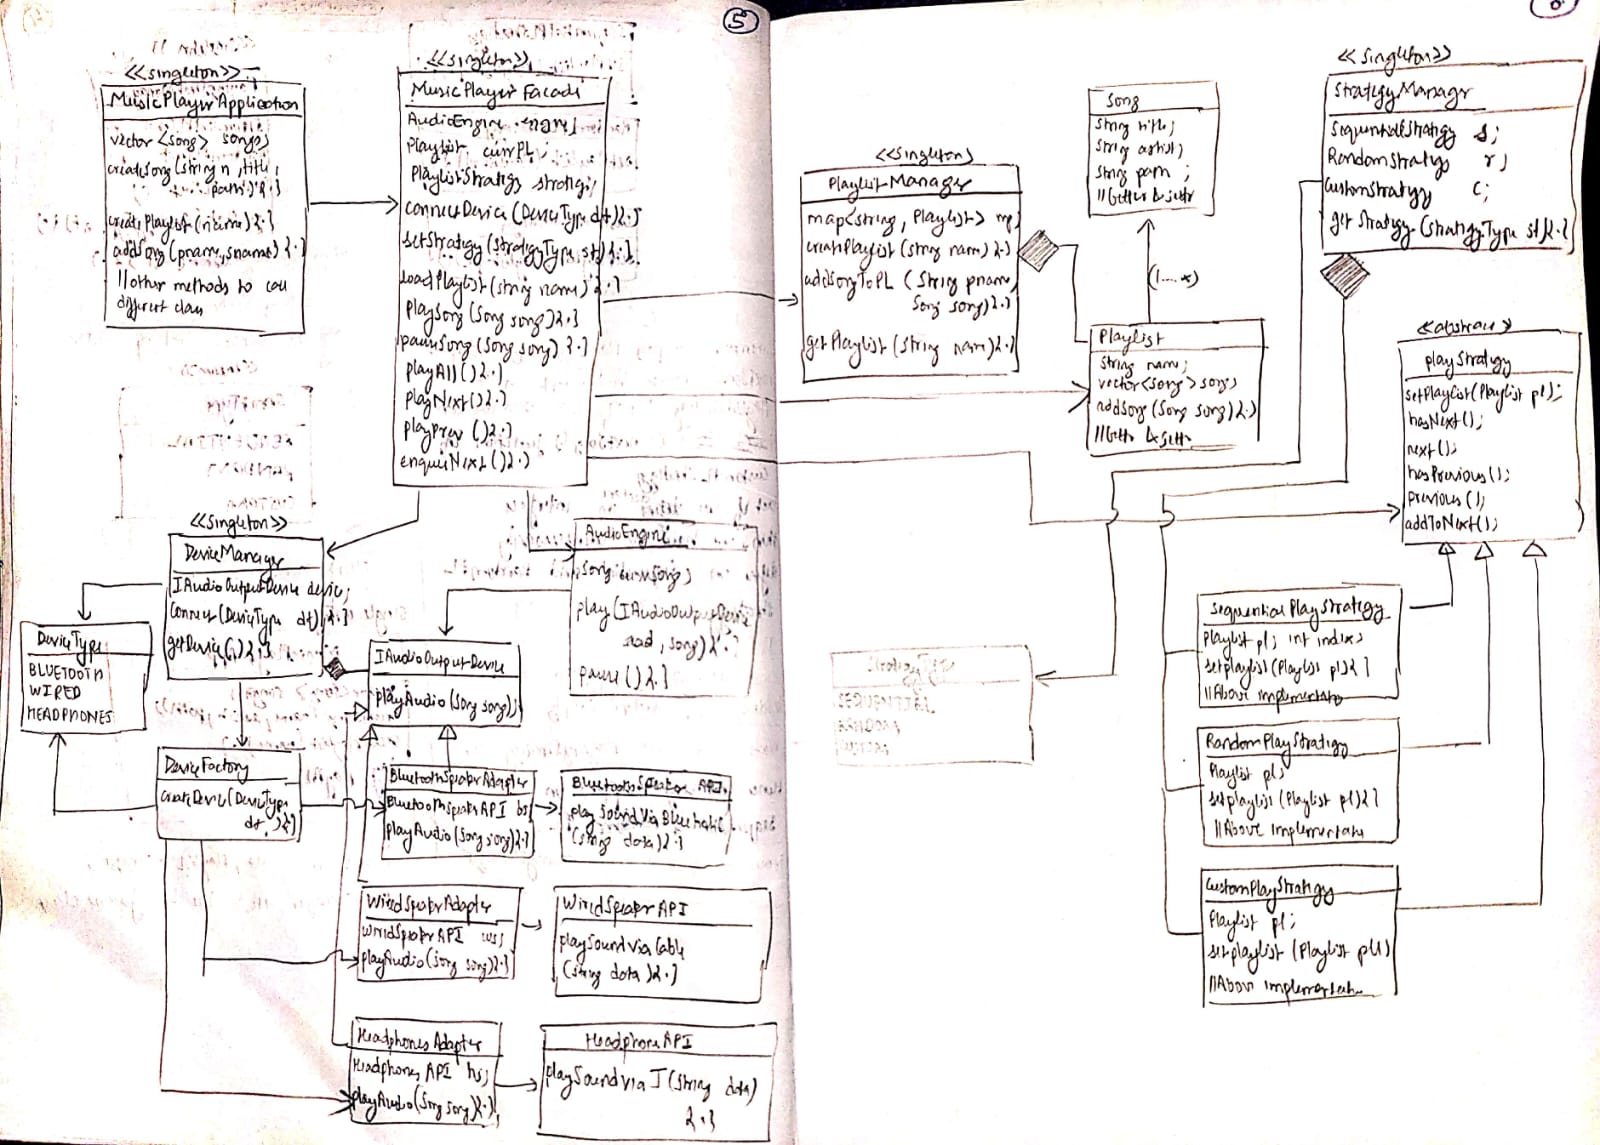 5
<<Singleton>>
MusicPlayerApplication
vector<song> songs;
createSong(string n, title,
path){.}
createPlaylist(name){.}
addSong(pname, sname){.}
//other methods to call
different class
<<Singleton>>
MusicPlayerFacade
AudioEngine engine;
Playlist currPL;
PlaylistStrategy strategy;
connectDevice(DeviceType dt){.}
setStrategy(StrategyType st){.}
loadPlaylist(string name){.}
playSong(Song song){.}
pauseSong(Song song){.}
playAll(){.}
playNext(){.}
playPrev(){.}
enqueueNext(){.}
<<Singleton>>
DeviceManager
IAudioOutputDevice device;
connect(DeviceType dt){.}
getDevice(){.}
DeviceType
BLUETOOTH
WIRED
HEADPHONES
AudioEngine
Song currSong;
play(IAudioOutputDevice
aod, song){.}
pause(){.}
IAudioOutputDevice
playAudio(Song song);
DeviceFactory
createDevice(DeviceType
dt){}
BluetoothSpeakerAdapter
BluetoothSpeakerAPI bs;
playAudio(Song song){.}
BluetoothSpeaker API
playSoundViaBluetooth
(string data){.}
WiredSpeakerAdapter
WiredSpeakerAPI ws;
playAudio(Song song){.}
WiredSpeakerAPI
playSoundViaCable
(string data){.}
HeadphonesAdapter
Headphones API hs;
playAudio(Song song){.}
HeadphoneAPI
playSoundViaJ(String data)
{.}
6
<<Singleton>>
PlaylistManager
map<string, Playlist> mp;
createPlaylist(string name){.}
addSongToPL(String pname,
Song song){.}
getPlaylist(String name){.}
Song
String title;
String artist;
String path;
//Getter & Setter
(1...*)
Playlist
String name;
vector<song> songs
addSong(Song song){.}
//Getter & Setter
<<Singleton>>
StrategyManager
SequentialStrategy s;
RandomStrategy r;
CustomStrategy c;
getStrategy(StrategyType st){.}
<<abstract>>
playStrategy
setPlaylist(Playlist pl);
hasNext();
next();
hasPrevious();
previous();
addToNext();
SequentialPlayStrategy
Playlist pl; int index;
setplaylist(Playlist pl){}
//Above implementation
RandomPlayStrategy
Playlist pl;
setplaylist(Playlist pl){}
//Above implementation
CustomPlayStrategy
Playlist pl;
setplaylist(Playlist pl)
//Above implementation